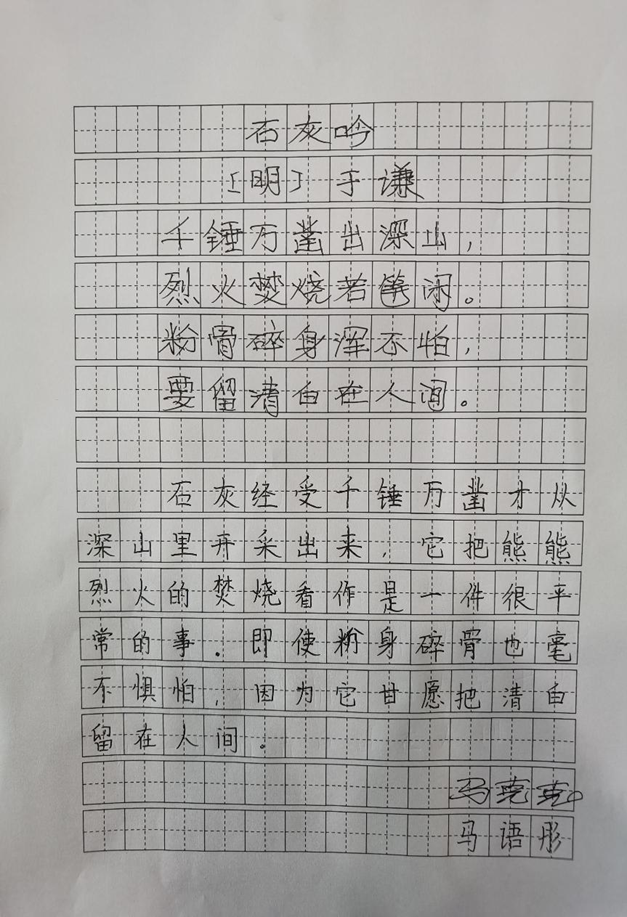 石灰吟
[明] 于谦
千锤万凿出深山，
烈火焚烧若等闲。
粉骨碎身浑不怕，
要留清白在人间。
石灰经受千锤万凿才从
深山里开采出来，它把熊熊
烈火的焚烧看作是一件很平
常的事。即使粉身碎骨也毫
不惧怕，因为它甘愿把清白
留在人间。
马克克
马语彤